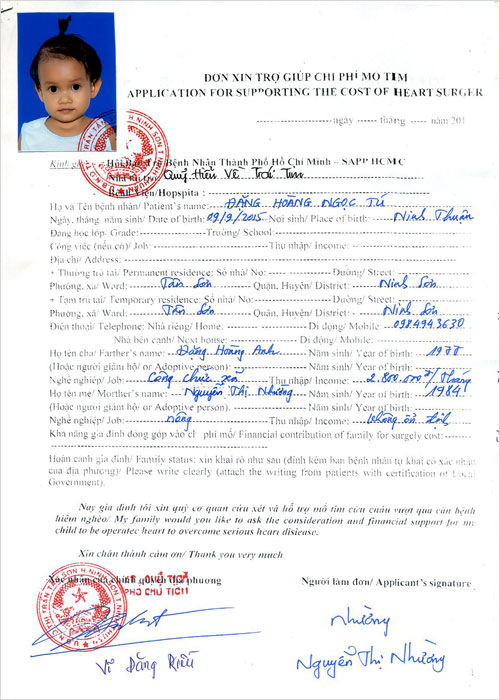 ĐƠN XIN TRỢ GIÚP CHI PHÍ MỔ TIM
APPLICATION FOR SUPPORTING THE COST OF HEART SURGER
ngày ------ tháng ----- năm 201
Kính gửi: Hội Bảo Trợ Bệnh Nhân Thành Phố Hồ Chí Minh – SAPP HCMC
Nhà tài trợ: Quỹ Hiểu Về Trái Tim
Bệnh viện/Hopspita :
Họ và Tên bệnh nhân/ Patient's name: ĐẶNG HOÀNG NGỌC TÚ
Ngày, tháng, năm sinh/ Date of birth: 09/9/2015 Nơi sinh/ Place of birth: Ninh Thuận
Đang học lớp/ Grade: Trường/ School:
Công việc (nếu có)/ Job: Thu nhập/ Income:
Địa chỉ/ Address:
+ Thường trú tại/ Permanent residence: Số nhà/ No: Đường/ Street:
Phường, xã/ Ward: Tân Sơn Quận, Huyện/ District: Ninh Sơn
+ Tạm trú tại/ Temporary residence: Số nhà/ No: Đường/ Street:
Phường, xã/ Ward: Tân Sơn Quận, Huyện/ District: Ninh Sơn
Điện thoại/ Telephone: Nhà riêng/ Home: Di động/ Mobile: 0984943630
Nhà bên cạnh/ Next house: Di động/ Mobile:
Họ tên cha/ Farther's name: Đặng Hoàng Anh Năm sinh/ Year of birth: 1978
(Hoặc người giám hộ/ or Adoptive person). Năm sinh/ Year of birth:
Nghề nghiệp/ Job: Công chức xã Thu nhập/ Income: 2.800.000đ/Tháng
Họ tên mẹ/ Morther's name: Nguyễn Thị Nhường Năm sinh/ Year of birth: 1984
(Hoặc người giám hộ/ or Adoptive person). Năm sinh/ Year of birth:
Nghề nghiệp/ Job: nông Thu nhập/ Income: Không ổn định
Khả năng gia đình đóng góp vào chi phí mổ/ Financial contribution of family for surgely cost:
Hoàn cảnh gia đình/ Family status: xin khai rõ như sau (đính kèm bản bệnh nhân tự khai có xác nhận
của địa phương)/ Please write clearly (attach the writing from patients with certification of Local
Government).
Nay gia đình tôi xin quý cơ quan cứu xét và hỗ trợ mổ tim cứu cháu vượt qua căn bệnh
hiểm nghèo/ My family would you like to ask the consideration and financial support for my
child to be operatec heart to overcome serious heart disiease.
Xin chân thành cám ơn/ Thank you very much
Xác nhận của chính quyền địa phương Người làm đơn/ Applicant's signature
PHÓ CHỦ TỊCH
Nhường
Võ Đăng Nguyễn Thị Nhường
1